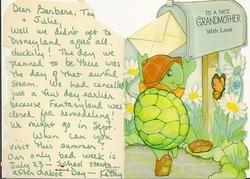 Dear Barbara, Tom
+ Julie,
Well we didn't get to
Disneyland after all,
chuckily! The day we
planned to be there was
the day of that awful
storm. We had cancelled
just a few days earlier
because Fantasyland was
closed for remodeling!
We might go in Sept.
When can you
visit this summer?
Our only bad week is
July 23 - School starts
after Labor Day - Kathy
TO A NICE
GRANDMOTHER
With Love